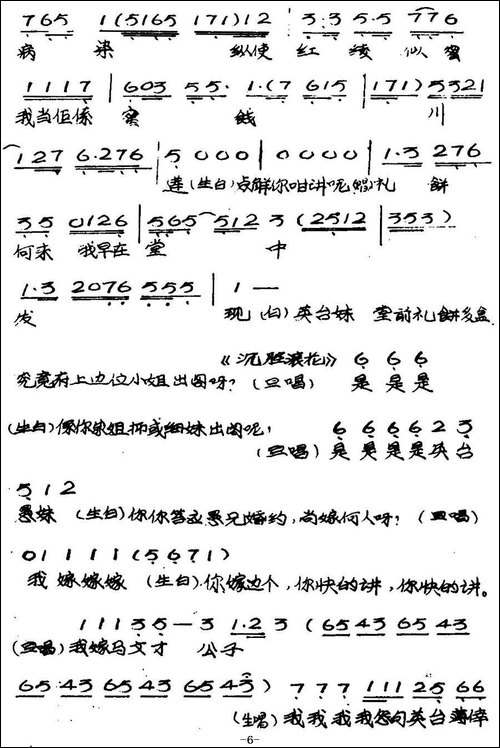 765 1(5165 171)12 3·3 5·5 776
病 染 纵使 红 绫 似 蜜
1117 603 55· 1·(7 615 171)5321
我当佢係 蜜 饯 川
127 6·276 5000 0000 1·3 276
莲(生白)点解你咁讲呢(唱)礼 饼
35 0126 565 512 3(2512 353)
何来 我早在 堂 中
1·3 2076 555 1 —
发 现(白)英台妹 堂前礼饼多盒
《沉腔滚花》6 6 6
究竟府上边位小姐出阁呀?(旦唱)是 是 是
6 6 6 6 2 3
(生白)係你家姐抑或细妹出阁呢,(旦唱)是 是 是 是英 台
5 1 2
愚妹 (生白)你你答应愚兄婚约,尚嫁何人呀?(旦唱)
0 1 1 1 1 (5 6 7 1)
我 嫁嫁嫁 (生白)你嫁边个,你快的讲,你快的讲。
1 1 1 3 5 — 3 1·2 3 (65 43 65 43
(旦唱)我嫁马文才 公子
65·43 65 43 65 43) 7 7 7 111 25 66
(生唱)我我我我怨句英台薄倖
-6-